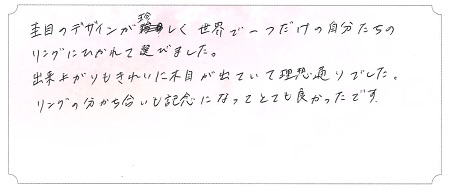 杢目のデザインが珍しく世界で一つだけの自分たちの
リングにひかれて選びました。
出来上がりもきれいに木目が出ていて理想通りでした。
リングの分かち合いも記念になってとても良かったです